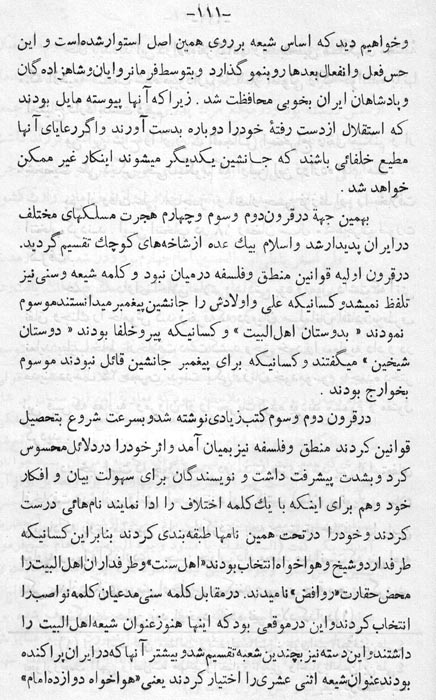 -۱۱۱-
وخواهیم دید که اساس شیعه بر روی همین اصل استوار شده است و این
حس فعل وانفعال بعدها رو بنمو گذارد وبتوسط فرمانروایان وشاهزاده گان
وپادشاهان ایران بخوبی محافظت شد . زیرا که آنها پیوسته مایل بودند
که استقلال ازدست رفتهٔ خودرا دوباره بدست آورند واگر رعایای آنها
مطیع خلفائی باشند که جانشین یکدیگر میشوند اینکار غیر ممکن
خواهد شد .
بهمین جهة درقرون دوم وسوم وچهارم هجرت مسلکهای مختلف
درایران پدیدار شد واسلام بیك عده ازشاخه‌های کوچك تقسیم گردید.
درقرون اولیه قوانین منطق وفلسفه درمیان نبود و کلمه شیعه وسنی نیز
تلفظ نمیشد و کسانیکه علی واولادش را جانشین پیغمبر میدانستند موسوم
نمودند « بدوستان اهل‌البیت » و کسانیکه پیرو خلفا بودند « دوستان
شیخین » میگفتند و کسانیکه برای پیغمبر جانشین قائل نبودند موسوم
بخوارج بودند .
درقرون دوم وسوم کتب زیادی نوشته شد و بسرعت شروع بتحصیل
قوانین کردند منطق وفلسفه نیز بمیان آمد واثر خودرا دردلائل محسوس
کرد و بشدت پیشرفت داشت و نویسندگان برای سهولت بیان و افکار
خود وهم برای اینکه با یك کلمه اختلاف را ادا نمایند نام‌هائی درست
کردند وخودرا درتحت همین نامها طبقه‌بندی کردند بنابر این کسانیکه
طرفدار دو شیخ وهواخواه انتخاب بودند «اهل سنت» وطرفداران اهل‌البیت را
محض حقارت «روافض» نامیدند. درمقابل کلمه سنی مدعیان کلمه نواصب را
انتخاب کردند واین درموقعی بود که اینها هنوز عنوان شیعه اهل‌البیت را
داشتند و این دسته نیز بچندین شعبه تقسیم شد و بیشتر آنها که در ایران پراکنده
بودند عنوان شیعه اثنی عشری را اختیار کردند یعنی «هواخواه دوازده امام»